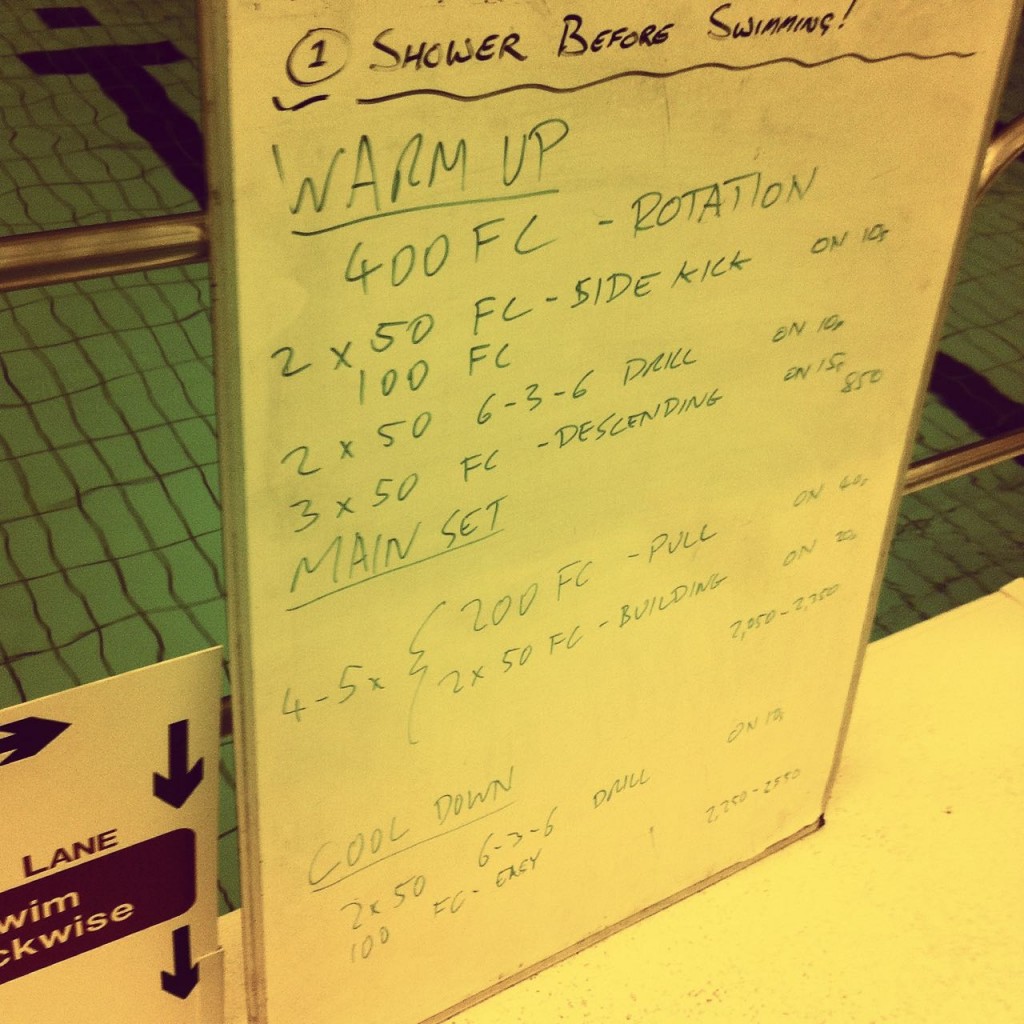 1 SHOWER BEFORE SWIMMING!
WARM UP
400 FC - ROTATION
2 x 50 FC - SIDE KICK ON 10s
100 FC
2 x 50 6-3-6 DRILL ON 10s
3 x 50 FC - DESCENDING ON 15s
850
MAIN SET
4-5x { 200 FC - PULL ON 40s
2 x 50 FC - BUILDING ON 20s
2,050-2,350
COOL DOWN
2x50 6-3-6 DRILL ON 10s
100 FC - EASY
2250-2550
LANE
wim
ckwise